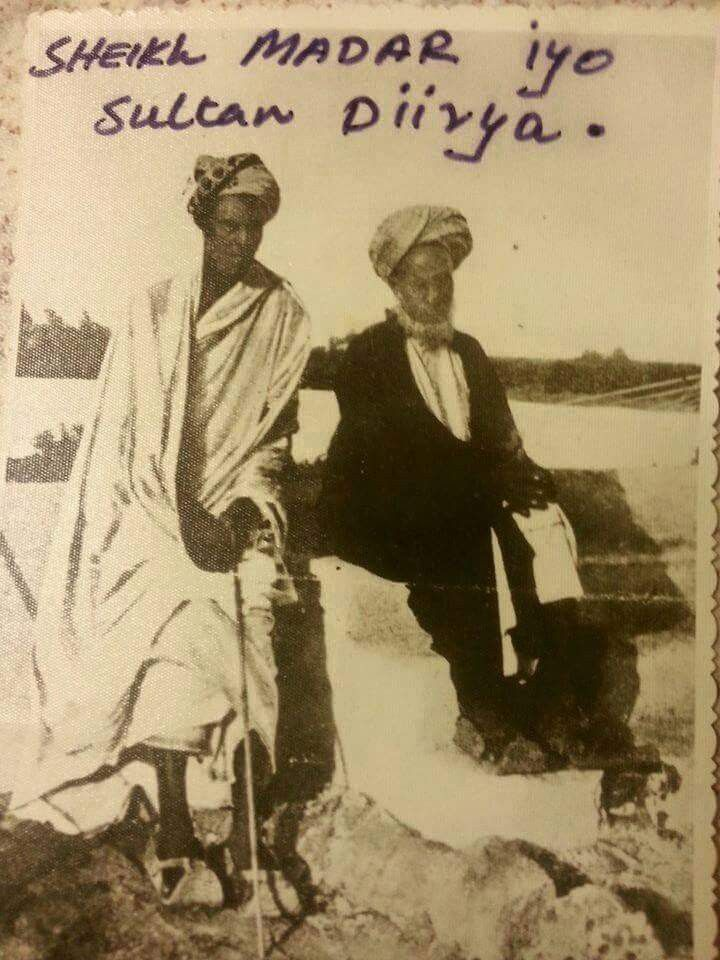 SHEIKH MADAR iyo
Sultan Diirya.